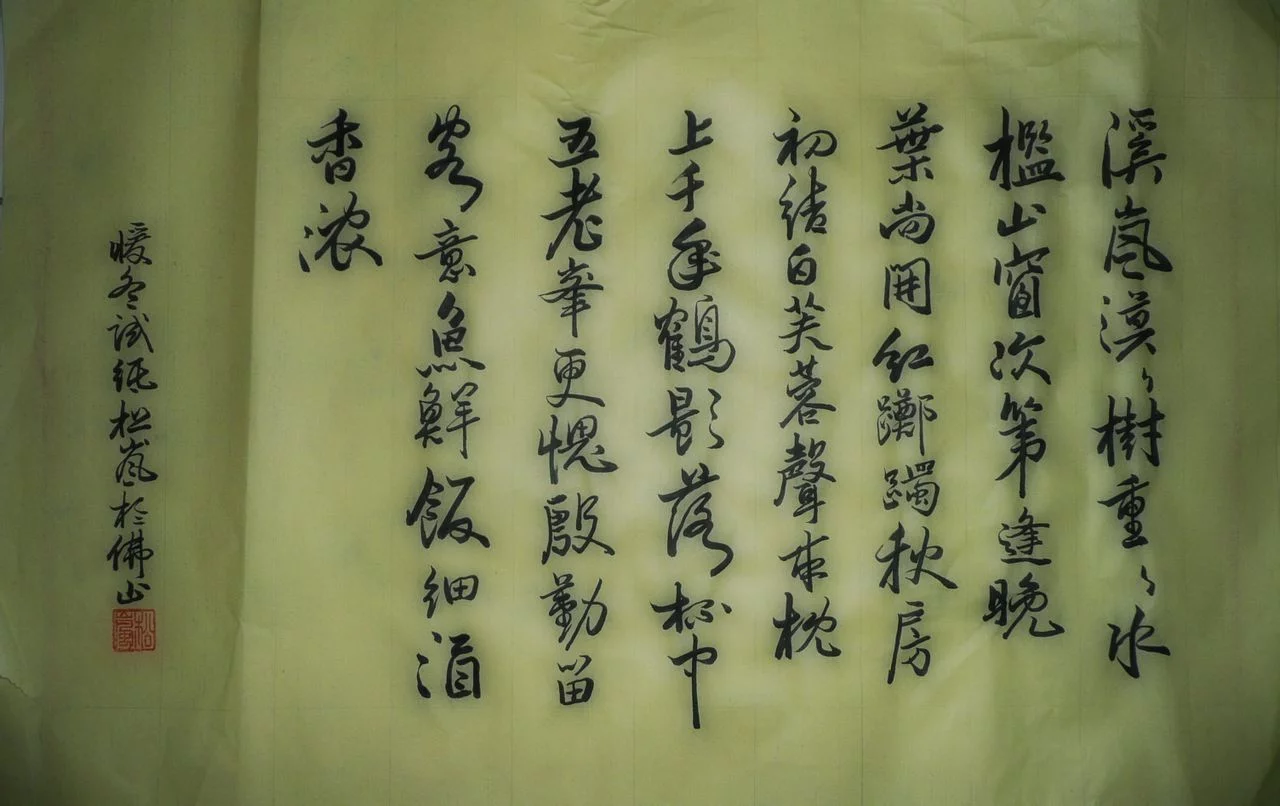 溪嵐漠々樹重々水
檻山窗次第逢晚
葉尚開紅躑躅秋房
初結白芙蓉聲來枕
上千年鶴影落杯中
五老峯更愧殷勤留
客意魚鮮飯細酒
香浓
暖冬試紙松嵐於佛山
松嵐